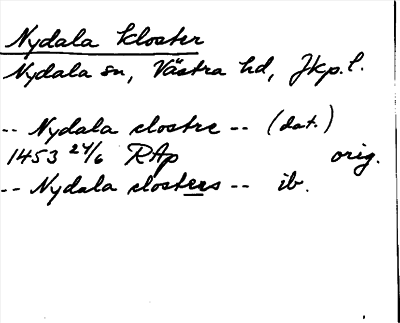 Nydala kloster
Nydala sn, Västra hd, Jkp.l.
-- Nydala clostre -- (dat.)
1453 24/6 RAp orig.
-- Nydala closters -- ib.